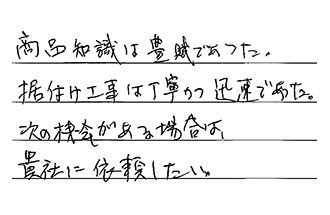 商品知識は豊賦であった。
据付け工事は丁寧かつ迅速であった。
次の機会がある場合は、
貴社に依頼したい。